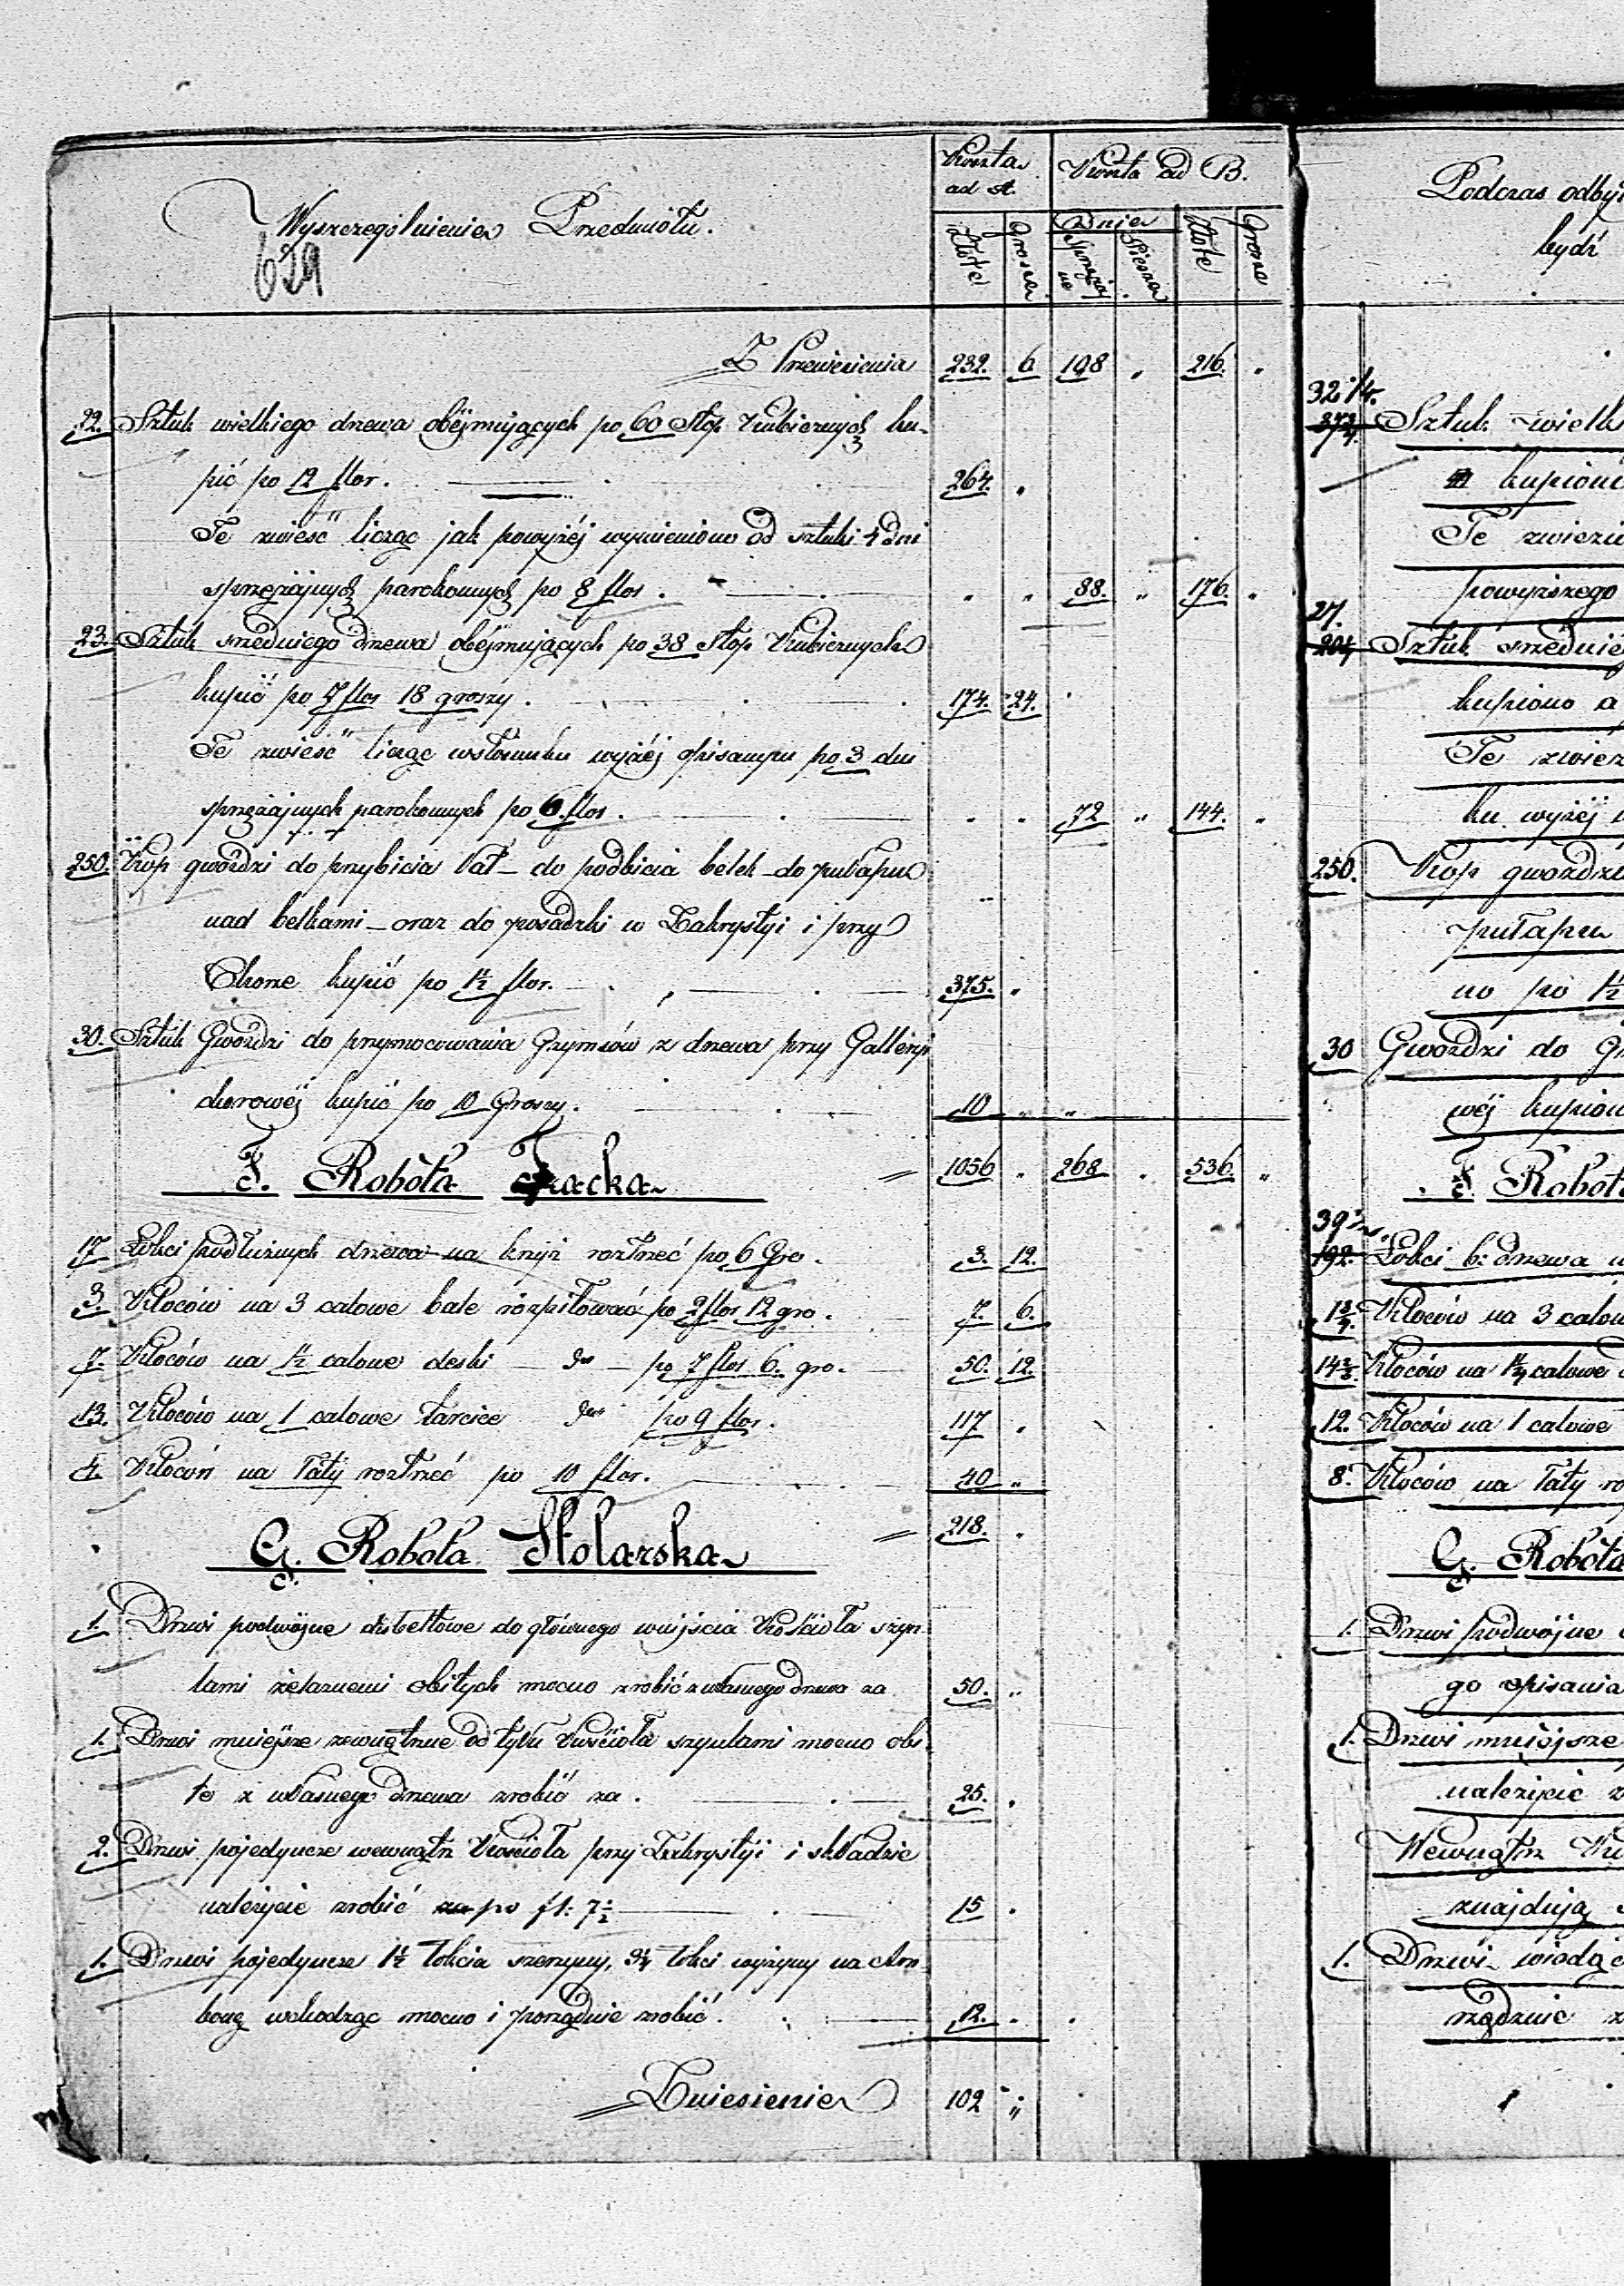 Wyszczególnienie Przedmiotu.
629
Kwota ad A. Kwota ad B.
Złote Grosze Dnie Sprzężajne Piesze Złote Grosze
Z Przeniesienia 232. 6. 108 " 216. "
22. Sztuk wielkiego drzewa obejmujących po 60 Stóp Kubicznych ku-
pić po 12 flor. 264. "
Te zwieść licząc jak powyżéj wymieniono od sztuki 4 dni
sprzężajnych parokonnych po 8 flor. " " 88. " 176. "
23. Sztuk średniego drzewa obéjmujących po 38 Stóp Kubicznych
kupić po 7 flor 18 groszy. 174. 24.
Te zwieść licząc w stosunku wyżéj opisanym po 3 dni
sprzężajnych parokonnych po 6. flor. " " 72 " 144. "
250. Kop gwoździ do przybicia łat – do podbicia belek – do pułapu
nad belkami – oraz do posadzki w Zakrystyi i przy
Chorze kupić po 1½ flor. 375. "
30. Sztuk Gwoździ do przymocowania Gzymsów z drzewa przy Galleryi
chorowéj kupić po 10 Groszy. 10 " "
F. Robota Tracka = 1056 " 268. " 536. "
17. Łokci podłużnych drzewa na krzyż rozrzneć po 6 Gro. 3. 12.
3. Kloców na 3 calowe bale rozpiłować po 2 flor 12 gro. 7. 6.
7. Kloców na 1½ calowe deski – dto – po 7 flor 6. gro. 50. 12.
13. Kloców na 1 calowe tarcice dto po 9 flor. 117 "
4. Kloców na łaty rozrzneć po 10 flor. 40 "
= 218. "
G. Robota Stolarska
1. Drzwi podwójne do głównego wnijścia Kościoła szyn-
tami żelaznemi obitych mocno zrobić z własnego drzewa za 50. "
1. Drzwi mniéjsze zewnątrzne od tyłu Kościoła mocno obi-
te z własnego drzewa zrobić za. 25. "
2. Drzwi pojedyncze wewnątrz Kościoła przy Zakrystyi i składzie
należycie zrobić za po fl: 7½ 15 "
1. Drzwi pojedyncze 1½ łokcia szerzyny, łokci wyżyny na Am-
bonę wchodząc mocno i porządnie zrobić. 12. "
Zniesienie 102 "
Podczas odby
bydź
32¼.
Sztuk wielk
kupion
Te zwiezi
powyższego
27.
Sztuk średnie
kupiono a
Te zwiez
ku wyżéj
250. Kop gwoździ
pułapu
no po 1½
30 Gwoździ do G
wéj kupion
F. Robota
192. Łokci b: drzewa
1¾. Kloców na 3 calow
Kloców na 1¼ calowe
12. Kloców na 1 calowe
8. Kloców na łaty ro
G. Robota
1. Drzwi podwójne
go opisania
1. Drzwi mniéjsze
należycie z
Wewnątrz Ko
znajdują
1. Drzwi wiodąc
rządnie z